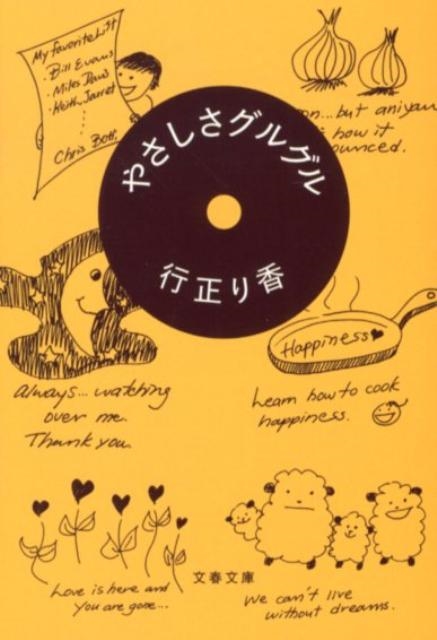 My favorite List
・Bill Evans
・Miles Davis
・Keith Jarret
Chris Bott
on...but aniyan
how it
ounced.
やさしさグルグル
行正り香
Happiness
Always... watching
over me.
Thank you.
Learn how to cook
happiness.
Love is here and
you are gone...
文春文庫
We can't live
without dreams.